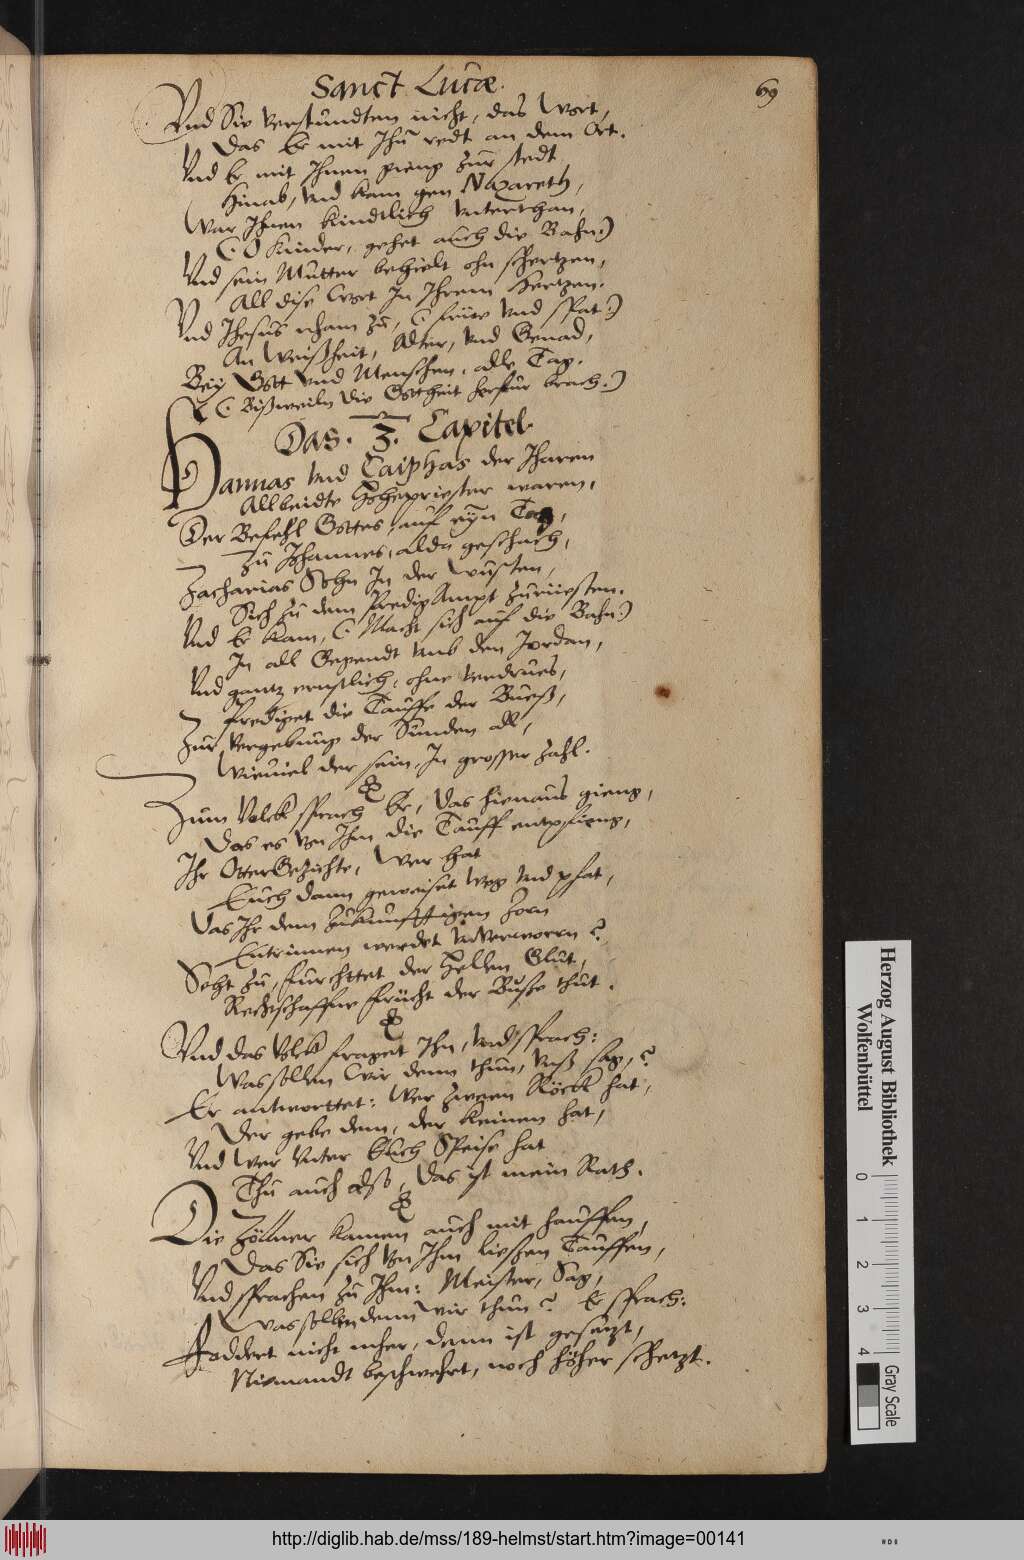 Sanct Lucæ.
69
Vnd Sie verstundten nicht, das Wort,
Das Er mit Ihn redt an dem Ort.
Vnd Er mit Ihnen gieng zur stedt
Hinab, vnd kam gen Nazareth,
War Ihnen kindtlich vnterthan,
(: O Kinder, gehet auch die Bahn:)
Vnd sein Mutter behielt ohn schertzen,
All dise Wort In Ihrem Hertzen.
Vnd Ihesus nham zu, (: früe vnd spat:)
An Weißheit, Alter, vnd Genad,
Bey Gott vnd Menschen, alle Tag.
(: Bißweiln die Gottheit herfür brach:)
Das. 3. Capitel.
Hannas vnd Caiphas der Iharen
Allbeidte Hohepriester waren,
Der Befehl Gottes, auf eyn Tag,
Zu Johannes, alda geschach,
Zacharias Sohn In der Wüsten,
Sich zu dem Predig Ampt zurüesten.
Vnd Er kam, (: Macht sich auf die Bahn:)
In all Gegendt vmb den Jordan,
Vnd gantz ernstlich, ohne verdrues,
Prediget die Tauffe der Bueß,
Zur vergebung der Sünden all,
Wieuiel der sein, In grosser Zahl.
Zum Volck sprach Er, das hienaus gieng,
Das es von Ihm die Tauff entpfieng,
Ihr OtterGezichte, Wer hat
Euch dann geweiset Weg vnd pfat,
Das Ihr dem zukunfftigen Zorn
Entrinnen werdet vnverworrn?
Seht zu, furchttet der Hellen Glut,
Rechtschaffne Frücht der Busse thut.
Vnd das Volck fraget Ihn, vnd sprach:
Was sollen Wir denn thun, vnß sag,?
Er antworttet: Wer zween Röckk hat,
Der gebe dem, der keinen hat,
Vnd Wer vnter Euch Speise hat
Thu auch also, Das ist mein Rath.
Die Zöllner kamen auch mit hauffen,
Das Sie sich von Ihm liessen Tauffen,
Vnd sprachen zu Ihm: Meister, Sag,
Was sollen denn Wir thun? Er sprach:
Foddert nicht mher, denn ist gesetzt,
Niemandt beschwehrt, noch höher schetzt.
Herzog August Bibliothek
Wolfenbüttel
0 1 2 3 4
Gray Scale
http://diglib.hab.de/mss/189-helmst/start.htm?image=00141